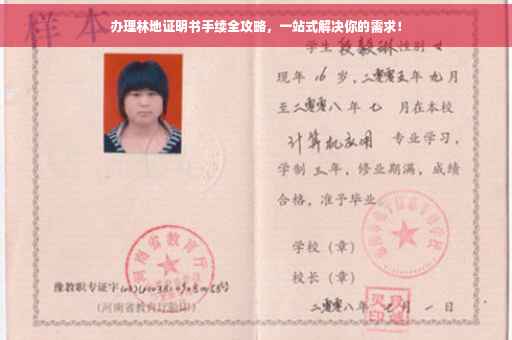 办理林地证明书手续全攻略，一站式解决你的需求！
样本
学生 性别 女
现年 16 岁，二零零五年 九月
至二零零八年 七 月在本校
计算机应用 专业学习，
学制 三年，修业期满，成绩
合格，准予毕业
学校（章）
校长（章）
二零零八年 七 月 一 日
河南省教育厅
豫教职专证字
(河南省教育厅验印)